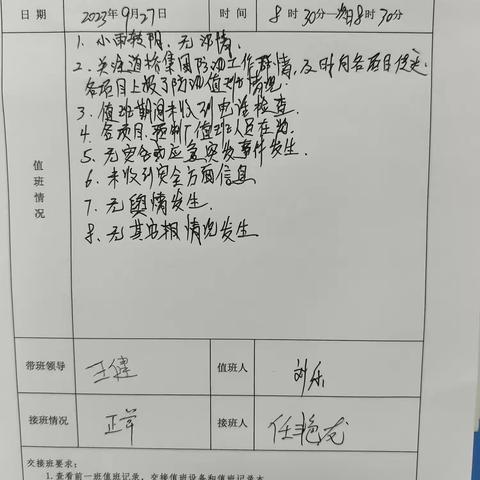 日期 2023年9月27日 时间 8时30分—次日8时30分
值班情况
1、小雨转阴，无汛情.
2、关注道桥集团防汛工作群情，及时向各项目传达.
各项目上报了防汛值班情况.
3、值班期间未收到电话检查.
4、各项目、预制厂值班人员在岗.
5、无灾害或应急突发事件发生.
6、未收到安全方面信息
7、无舆情发生.
8、无其它相情况发生
带班领导 王健 值班人 刘乐
接班情况 正常 接班人 任艳龙
交接班要求：
1.查看前一班值班记录，交接值班设备和值班记录本